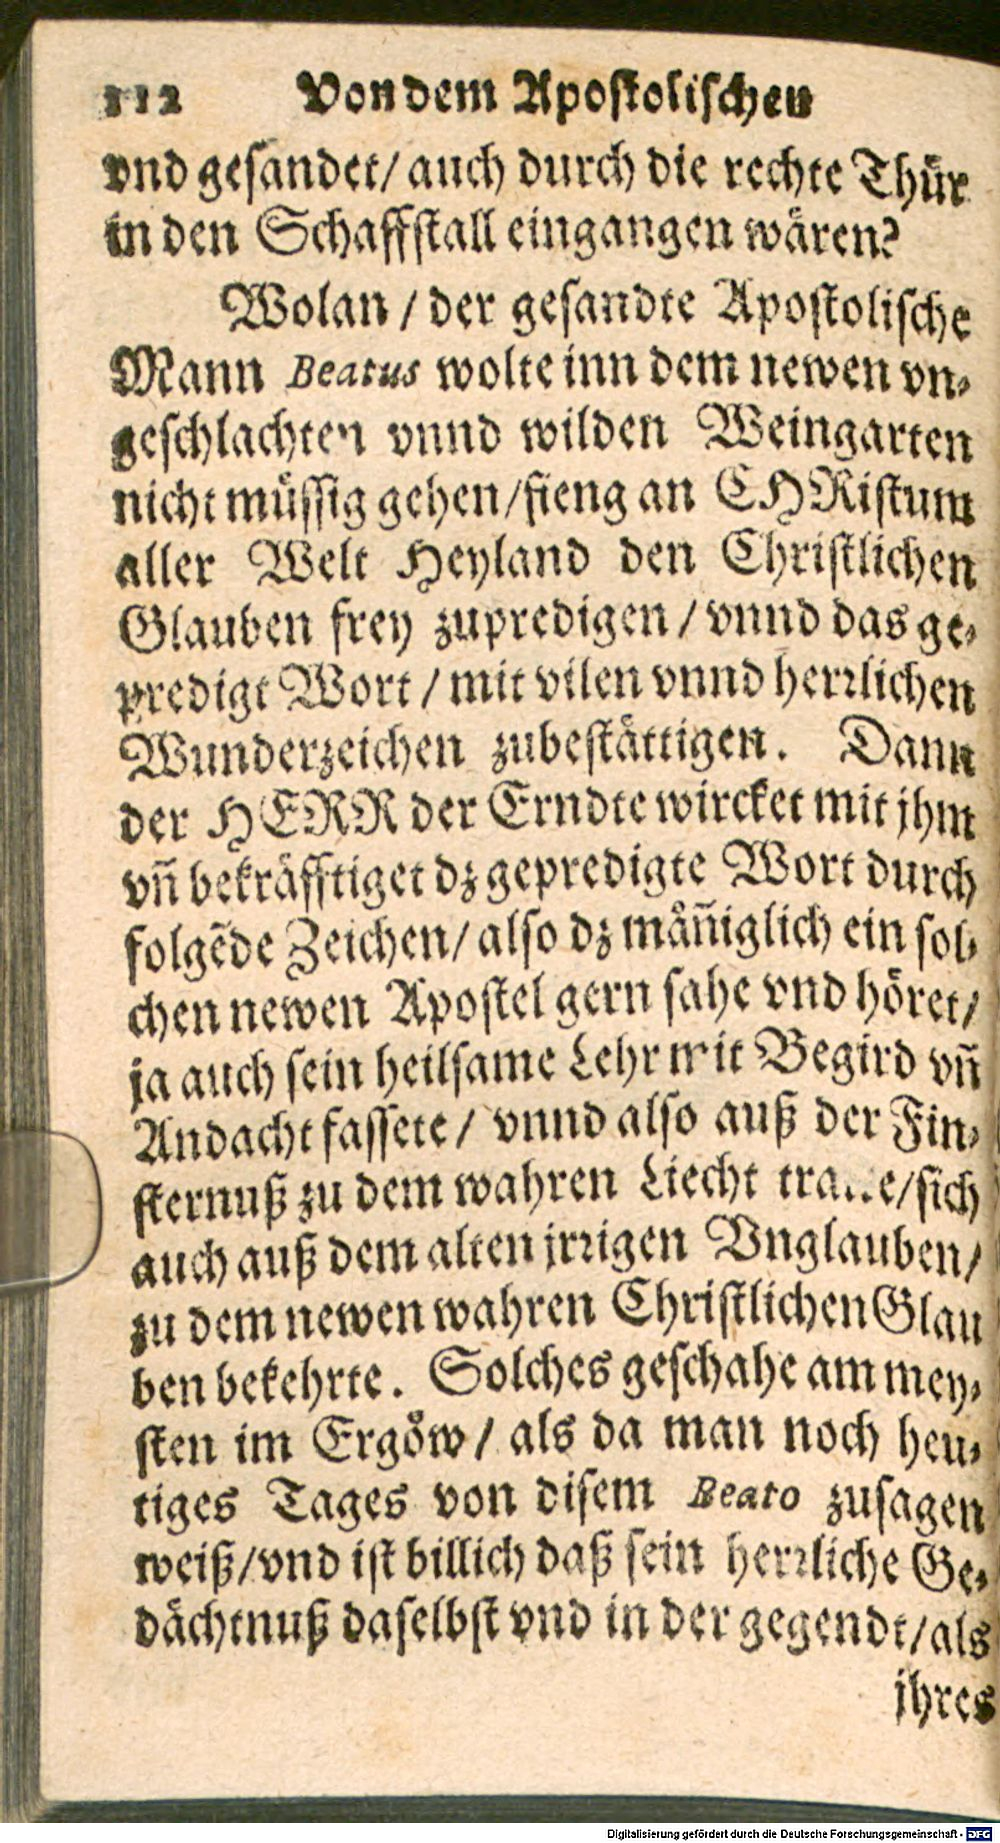 112 Von dem Apostolischen
vnd gesandet/ auch durch die rechte Thür
in den Schaffstall eingangen wären?
Wolan / der gesandte Apostolische
Mann Beatus wolte inn dem newen vn-
geschlachten vnnd wilden Weingarten
nicht müssig gehen/fieng an CHRistum
aller Welt Heyland den Christlichen
Glauben frey zupredigen / vnnd das ge-
predigt Wort / mit vilen vnnd herrlichen
Wunderzeichen zubestättigen. Dann
der HERR der Erndte wircket mit jhm
vñ bekräfftiget dz gepredigte Wort durch
folgẽde Zeichen/ also dz mån̄iglich ein sol-
chen newen Apostel gern sahe vnd höret/
ja auch sein heilsame Lehr mit Begird vñ
Andacht fassete/ vnnd also auß der Fin-
sternuß zu dem wahren Liecht /sich
auch auß dem alten jrrigen Vnglauben/
zu dem newen wahren Christlichen Glau
ben bekehrte. Solches geschahe am mey-
sten im Ergöw/ als da man noch heu-
tiges Tages von disem Beato zusagen
weiß/vnd ist billich daß sein herrliche Ge-
dächtnuß daselbst vnd in der gegendt/als
jhres
Digitalisierung gefördert durch die Deutsche Forschungsgemeinschaft - DFG